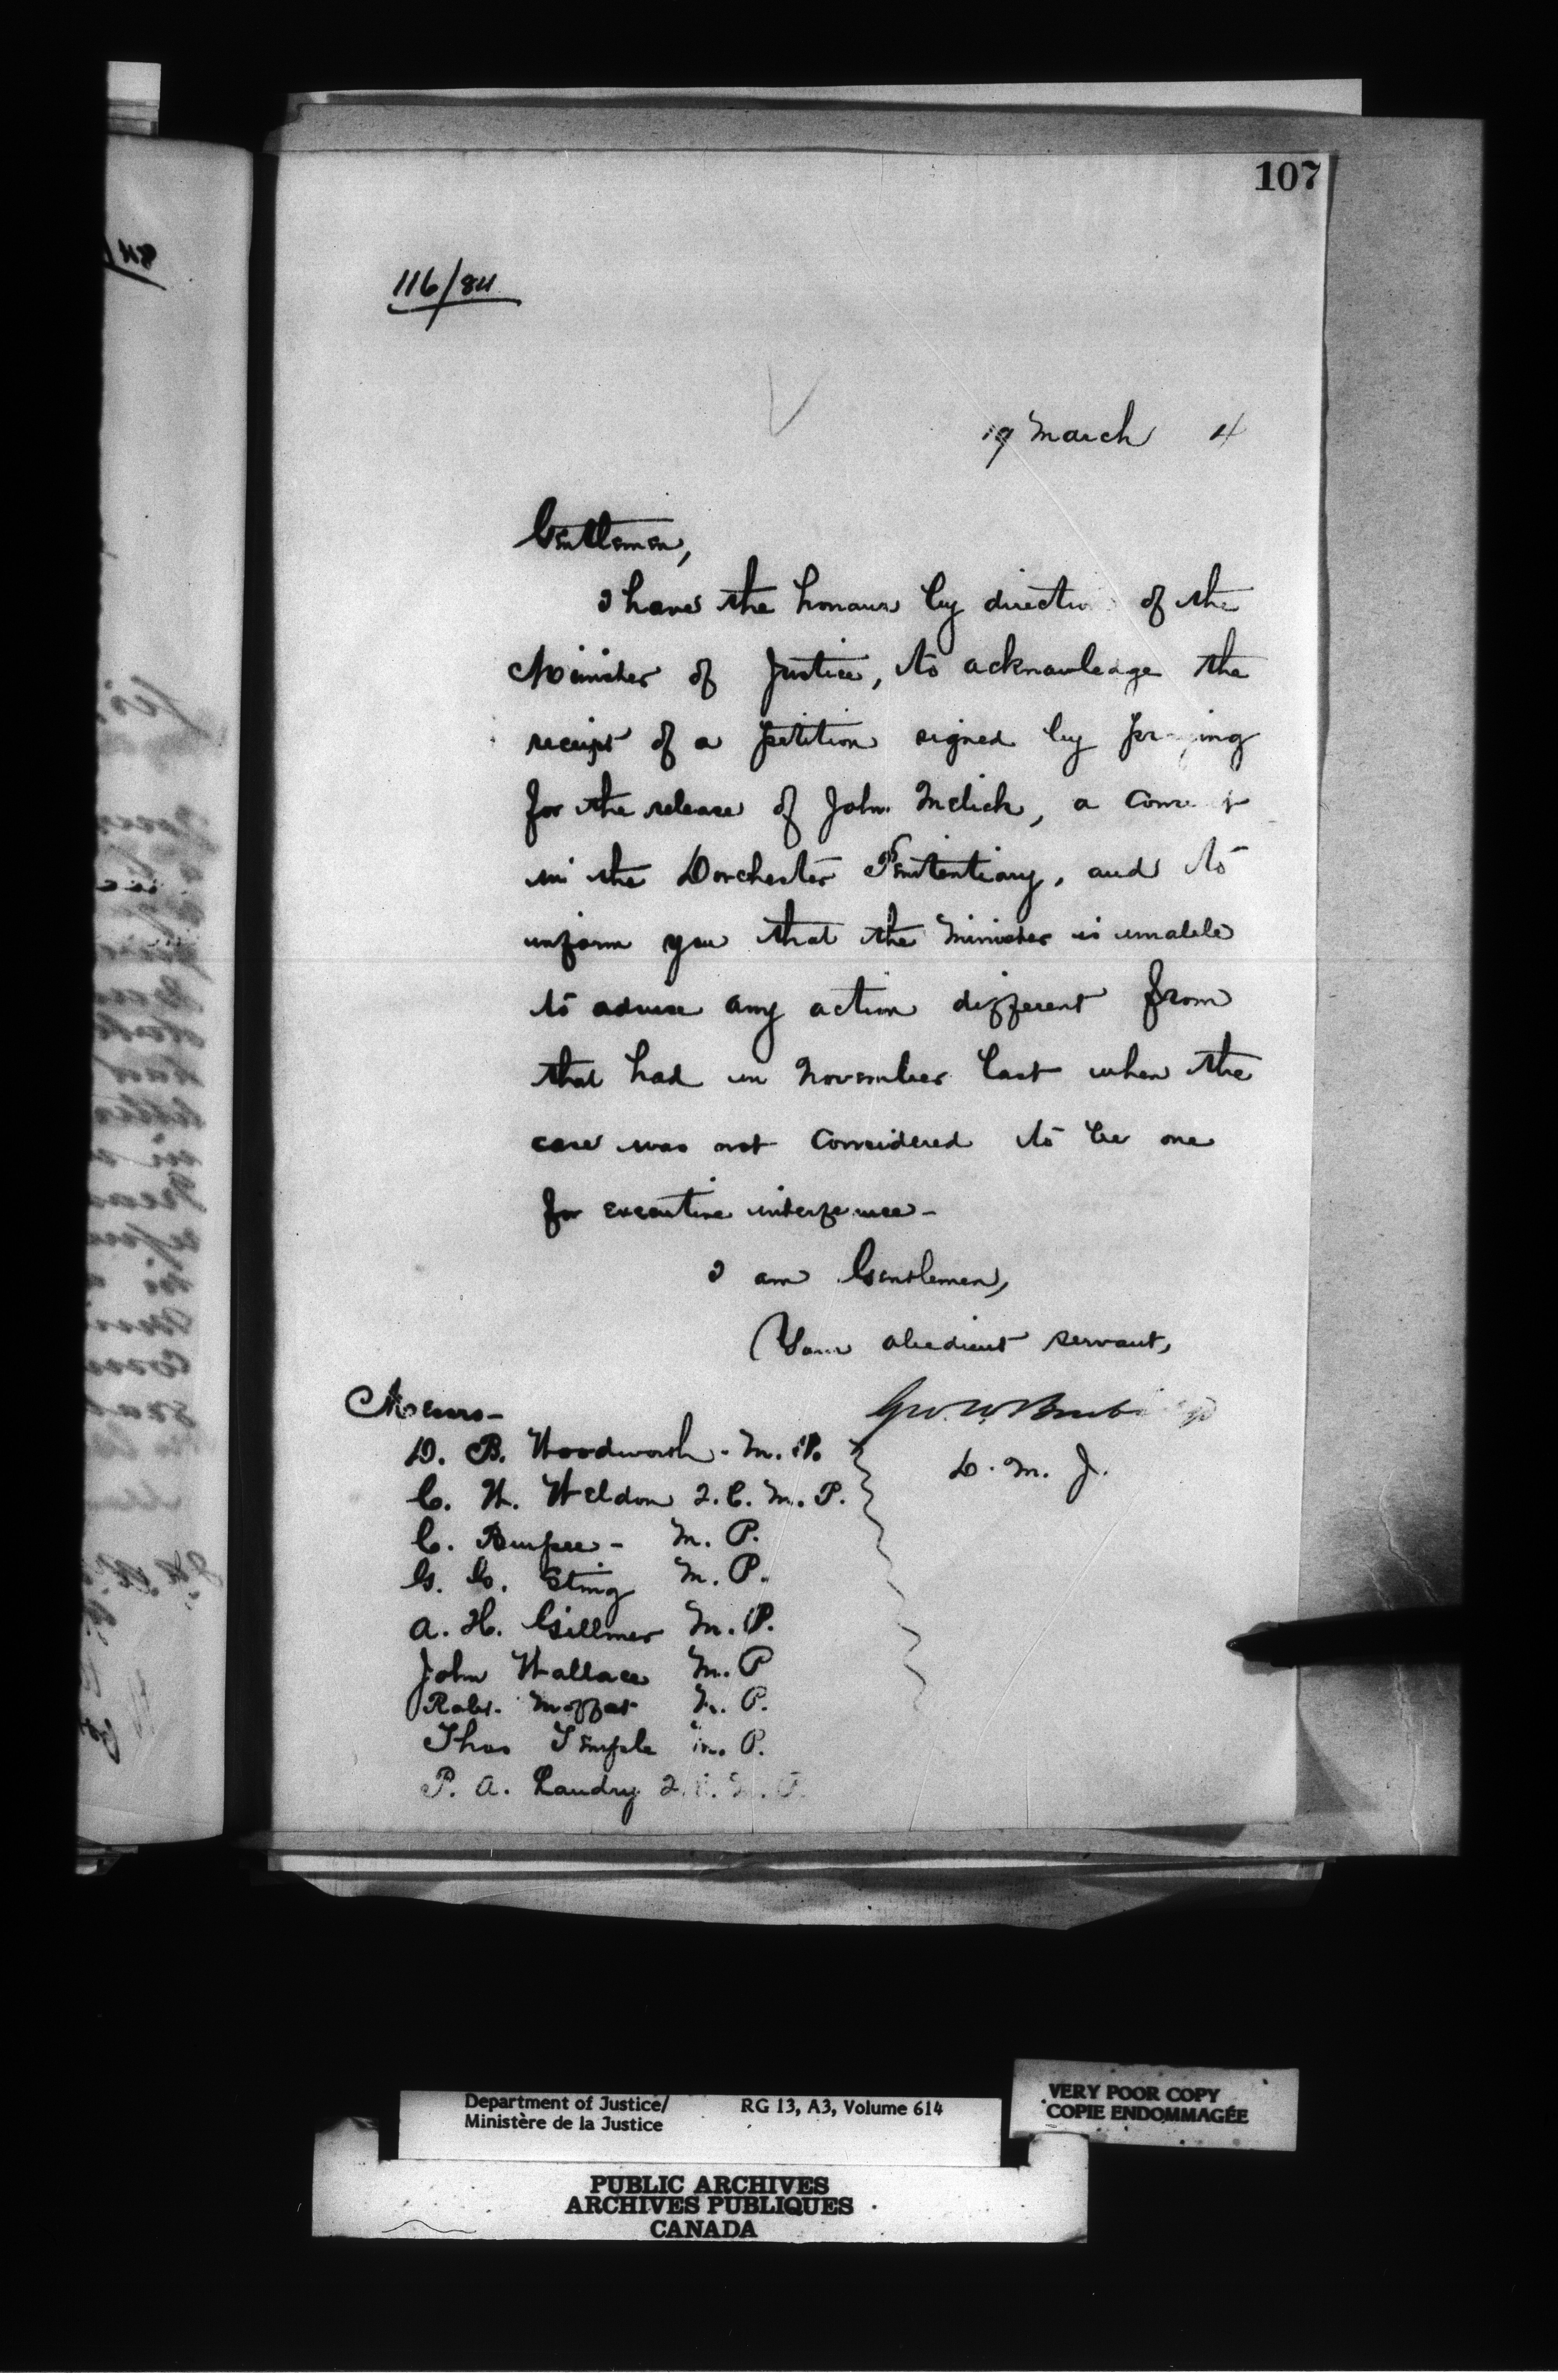 107
116/84
19 March 4
Gentlemen,
I have the honour by direction of the
Minister of Justice, to acknowledge the
receipt of a petition signed by praying
for the release of John Melick, a Convict
in the Dorchester Penitentiary, and to
inform you that the Minister is unable
to advise any action different from
that had in November last when the
case was not considered to be one
for executive interference-
I am Gentlemen,
Your obedient servant,
Geo. W. Burbidge
D. M. J.
Messrs-
D. B. Woodworth - M. P.
C. W. Weldon Q. C. M. P.
C. Burpee - M. P.
G. G. King M. P.
A. H. Gillmor M. P.
John Wallace M. P
Robt. Moffat M. P.
Thos Temple M. P.
P. A. Landry Q. C. M. P.
Department of Justice/ RG 13, A3, Volume 614
Ministère de la Justice
VERY POOR COPY
COPIE ENDOMMAGÉE
PUBLIC ARCHIVES
ARCHIVES PUBLIQUES
CANADA